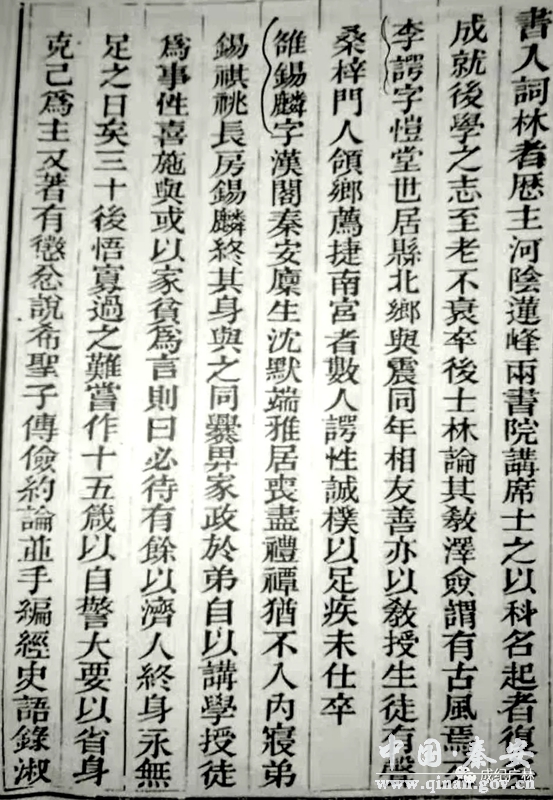 書入詞林者歷主河陰蓮峰兩書院講席士之以科名起者復
成就後學之志至老不衰卒後士林論其敎澤僉謂有古風焉
李諤字愷堂世居縣北鄉與震同年相友善亦以敎授生徒有聲
桑梓門人領鄉薦捷南宮者數人諤性誠樸以足疾未仕卒
雒錫麟字漢閣秦安廩生沈默端雅居喪盡禮禫猶不入內寢弟
錫祺祧長房錫麟終其身與之同爨畀家政於弟自以講學授徒
爲事性喜施與或以家貧爲言則曰必待有餘以濟人終身永無
足之日矣三十後悟寡過之難嘗作十五箴以自警大要以省身
克己爲主又著有懲忿說希聖子傳儉約論並手編經史語錄淑
中国·秦安
成纪广林
www.qinan.gov.cn